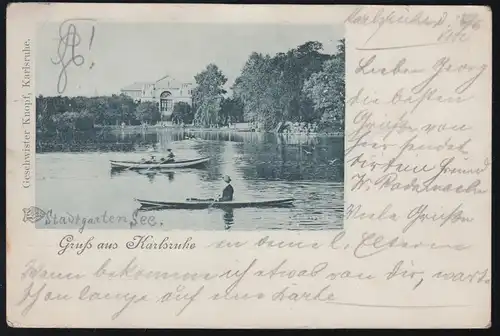 Geschwister Knopf, Karlsruhe.
Karlsruhe d.
Lieber Georg
die besten
Grüße von
hier sendet
dir dein Freund
W. Rademacher
Viele Grüße
Stadtgarten See.
Gruß aus Karlsruhe
an deine l. Eltern
Wann bekomme ich etwas von dir, warte
schon lange auf eine Karte